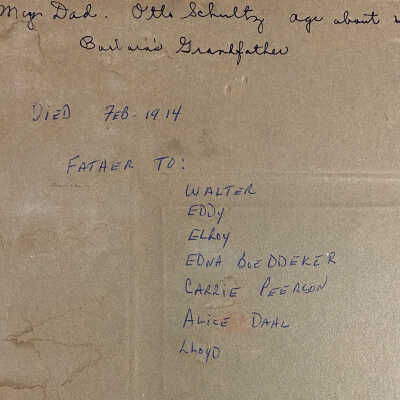 Dad. Otto Schultz age about
Barbara's Grandfather
DIED FEB. 1914
FATHER TO:
WALTER
EDDY
ELROY
EDNA BOEDDEKER
CARRIE PEERSON
ALICE DAHL
LLOYD